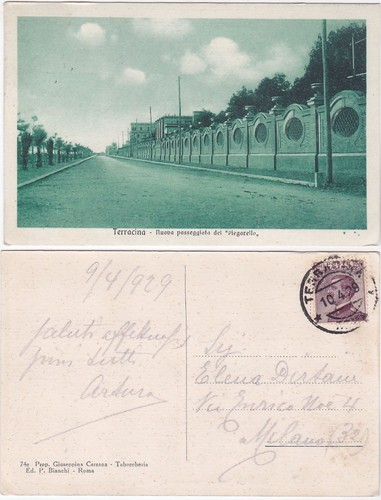 Terracina - Nuova passeggiata del "Piegarello"
9/4/929
Saluti affettuosi
Arturo
TERRACINA
10.4.29
Sig.
Elena
Via Enrico Noe 4
Milano
74e Prop. Giuseppina Carozza - Tabaccheria
Ed. P. Bianchi - Roma